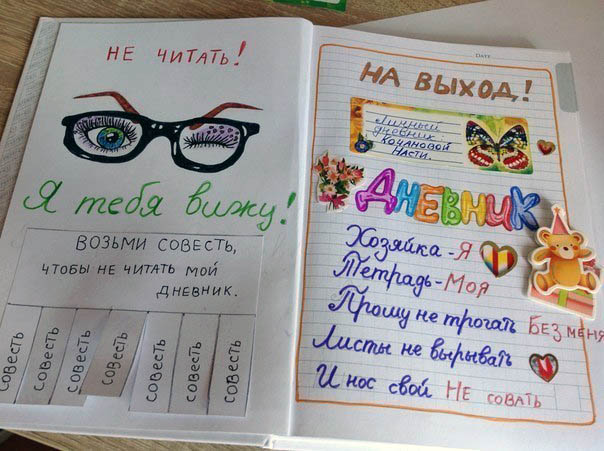 НЕ ЧИТАТЬ!
Я тебя вижу!
ВОЗЬМИ СОВЕСТЬ,
ЧТОБЫ НЕ ЧИТАТЬ МОЙ
ДНЕВНИК.
СОВЕСТЬ
СОВЕСТЬ
СОВЕСТЬ
СОВЕСТЬ
СОВЕСТЬ
СОВЕСТЬ
СОВЕСТЬ
DATE
НА ВЫХОД!
Личный
дневник
КОЧАНОВОЙ
НАСТИ.
ДНЕВНИК
Хозяйка - Я
Тетрадь - Моя
Прошу не трогать БЕЗ МЕНЯ
Листы не вырывать
И нос свой НЕ СОВАТЬ